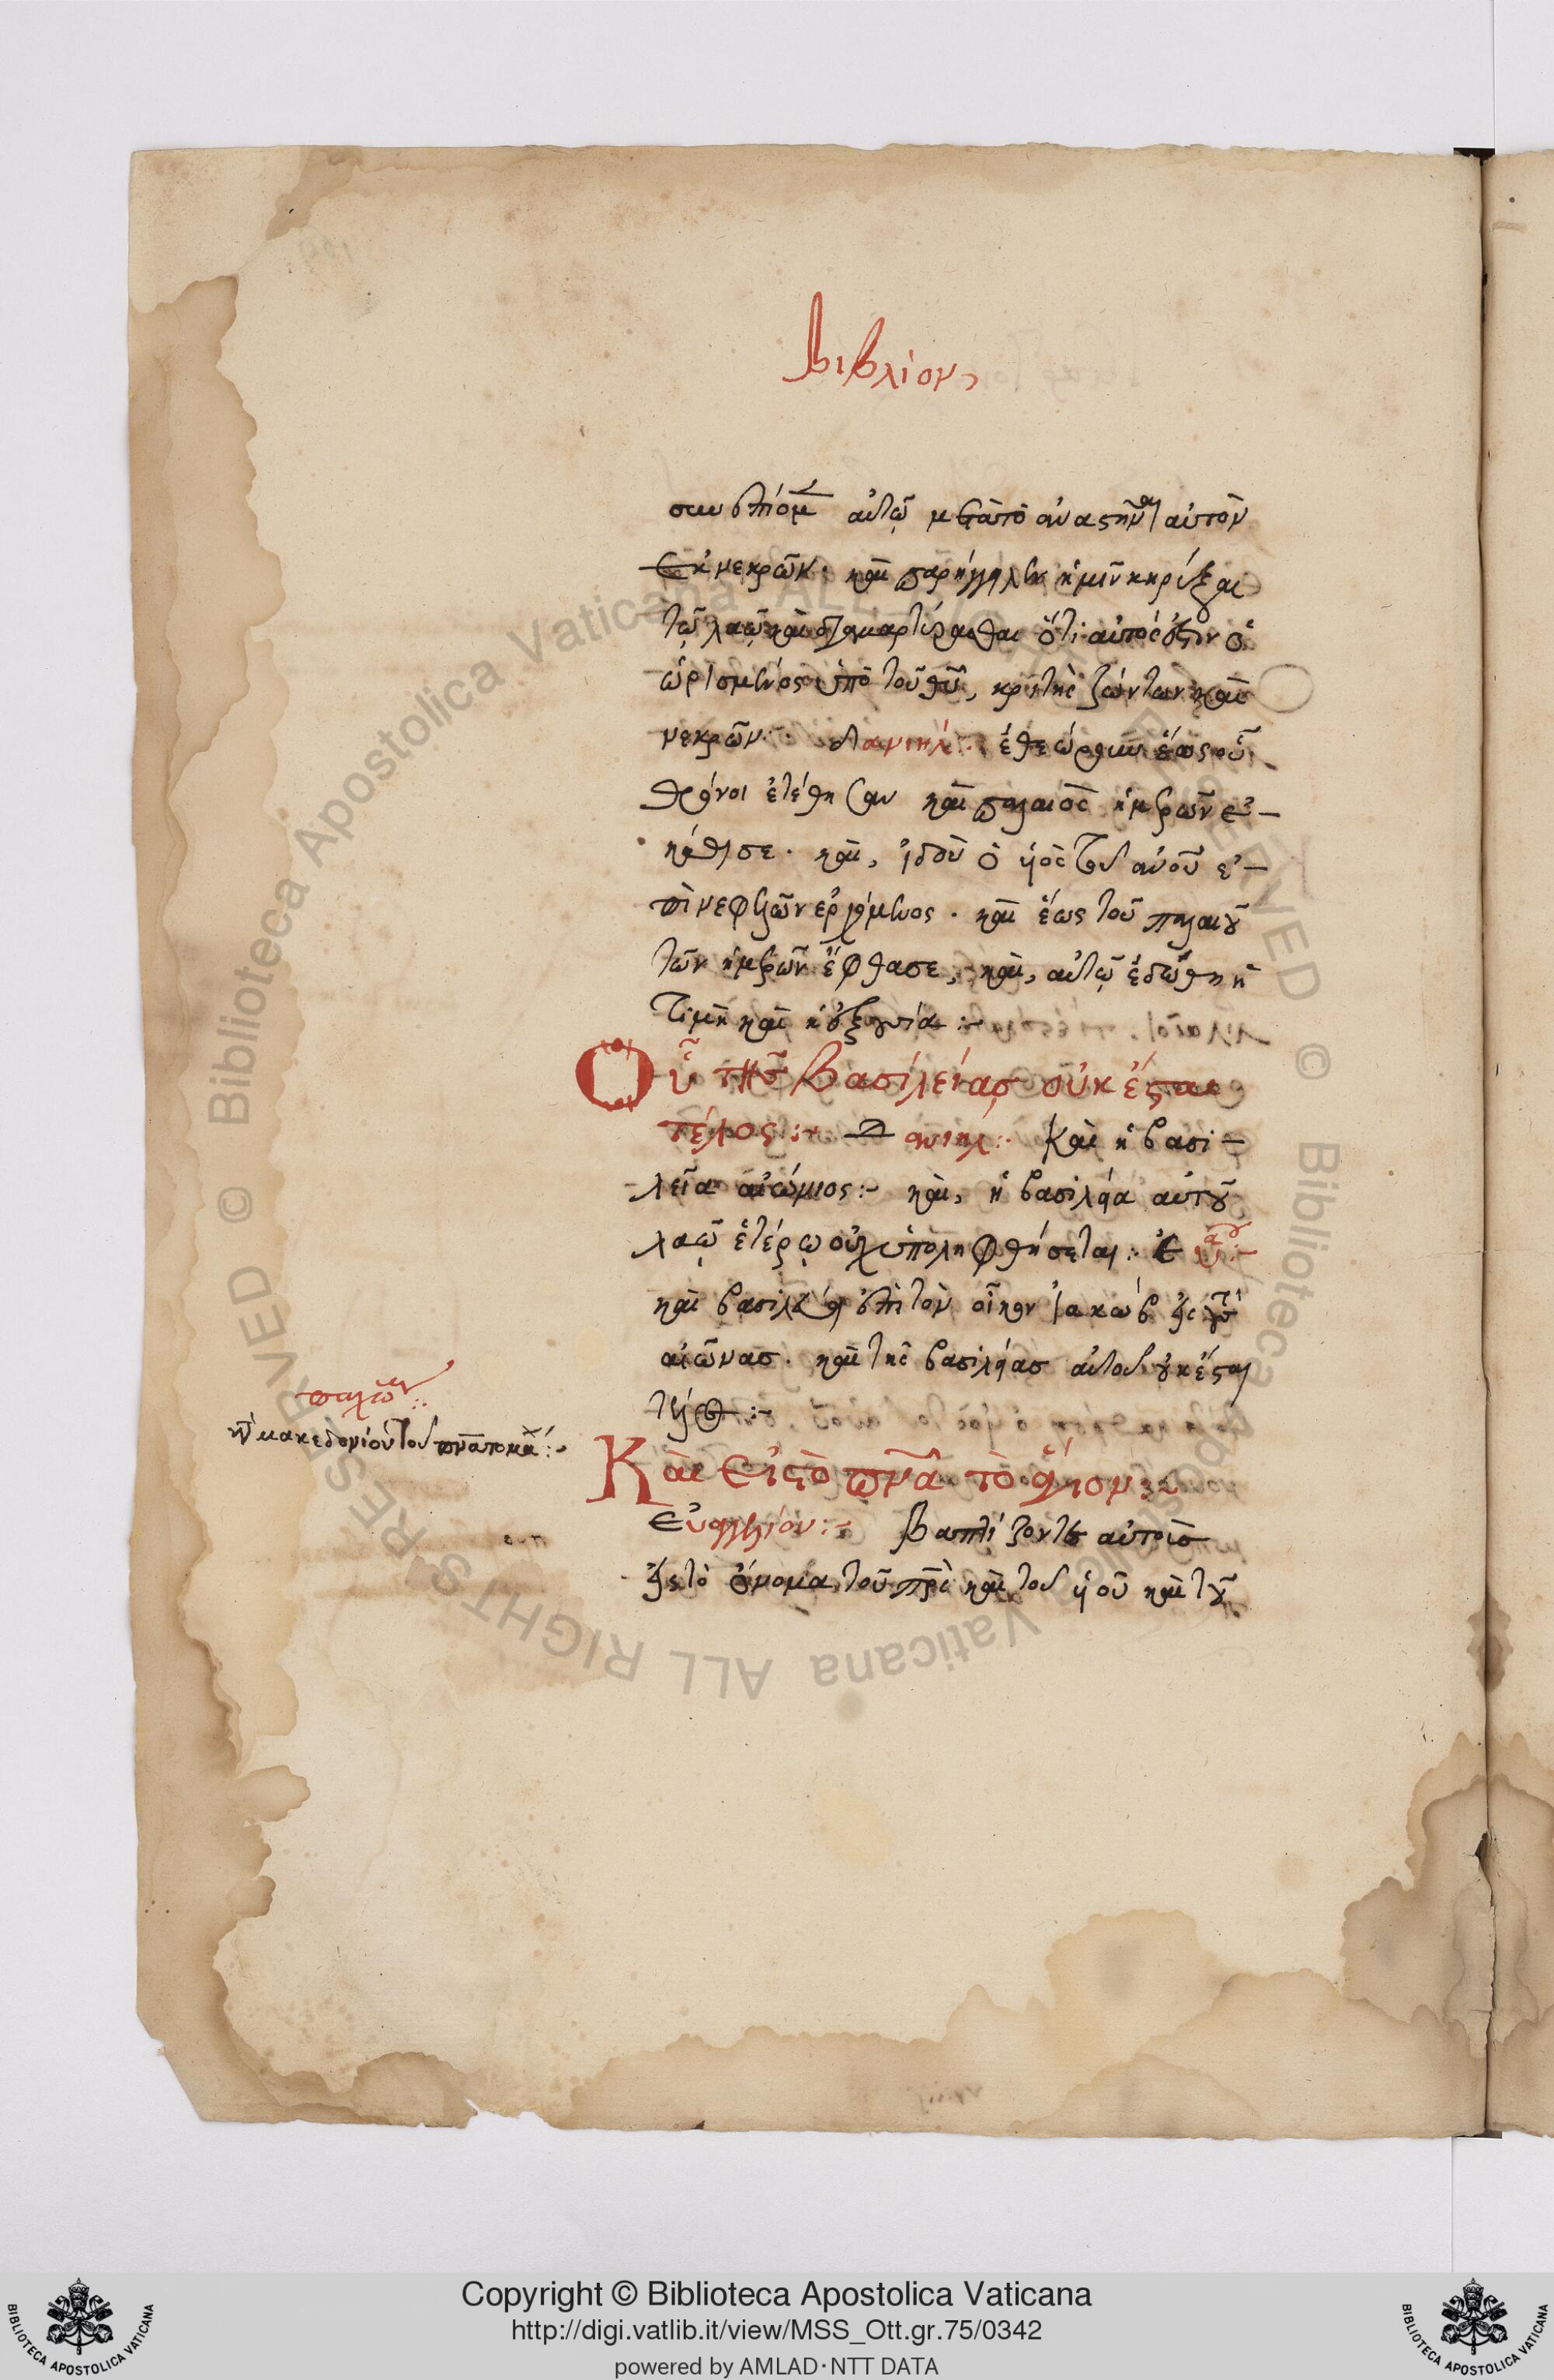 βιβλίον,
συνεπίομ(εν) αὐτῶ μετὰ τὸ ἀναστῆναι αὐτὸν
ἐκ νεκρῶν. καὶ παρήγγειλεν ἡμῖν κηρύξαι
τῶ λαῶ καὶ διαμαρτύρασθαι ὅτι αὐτός ἐστιν ὁ
ὡρισμένος ὑπὸ τοῦ θῦ, κριτὴς ζώντων καὶ
νεκρῶν:- Δανιήλ:- ἐθεώρουν ἕως οὗ
θρόνοι ἐτέθησαν καὶ παλαιὸς ἡμερῶν ἐ-
κάθισε. καὶ, ἰδοὺ ὁ υἱὸς τοῦ ἀνοῦ ἐ-
πὶ νεφελῶν ἐρχόμενος. καὶ ἕως τοῦ παλαιοῦ
τῶν ἡμερῶν ἔφθασε, καὶ, αὐτῶ ἐδώθη ἡ
τιμὴ καὶ ἡ ἐξουσία:-
Οὗ τῆς βασιλείας οὐκ ἔσται
τέλος:- Δανιήλ:- Καὶ ἡ βασι-
λεῖα αἰώνιος:- καὶ, ἡ βασιλεία αὐτοῦ
λαῶ ἑτέρω οὐχ ὑπολειφθήσεται:-
καὶ βασιλεύσει ἐπὶ τὸν οἶκον Ἰακὼβ εἰς τοὺς
αἰῶνας. καὶ τῆς βασιλείας αὐτοῦ οὐκ ἔσται
τέλος:-
μακεδονίου τοῦ πνατομά:-
Καὶ εἰς τὸ πνᾶ τὸ ἅγιον
Εὐαγγέλιον:- Βαπτίζοντες αὐτοὺς
εἰς τὸ ὄνομα τοῦ πρς καὶ τοῦ υἱοῦ καὶ τοῦ
Copyright © Biblioteca Apostolica Vaticana
http://digi.vatlib.it/view/MSS_Ott.gr.75/0342
powered by AMLAD·NTT DATA
BIBLIOTECA APOSTOLICA VATICANA
BIBLIOTECA APOSTOLICA VATICANA